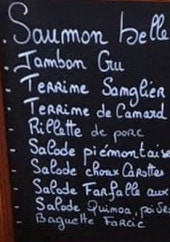 Saumon belle
Jambon Cru
Terrine Sanglier
Terrine de Canard
Rillette de porc
Salade piémontaise
Salade choux Carottes
Salade Farfalle aux
Salade Quinoa, pois
Baguette Farcie